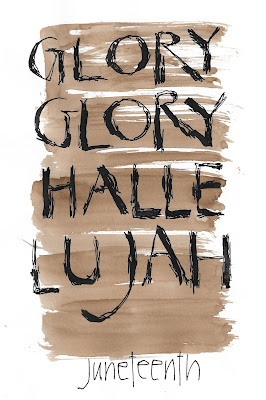 GLORY
GLORY
HALLE
LUJAH
juneteenth